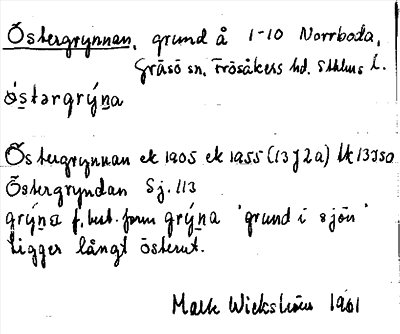 Östergrynnan, grund å 1-10 Norrboda,
Gräsö sn. Frösåkers hd. Sthlms l.
östərgrýna
Östergrynnan ek 1905 ek 1955 (13J2a) tk 13JSO
Östergryndan Sj. 113
grýna f. best. form grýna "grund i sjön"
ligger långt österut.
Mats Wickström 1961